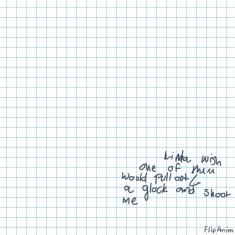 kinda wish
one of them
would pull out
a glock and shoot
me
FlipAnim